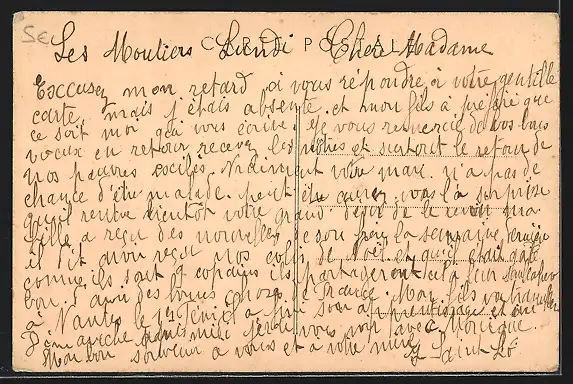 Les Moutiers Lundi Chère Madame
CARTE POSTALE
Excusez mon retard à vous répondre à votre gentille
carte, mais j'étais absente. et mon fils a préféré que
ce soit moi qui vous écrive. Je vous remercie de vos bons
voeux en retour recevez les nôtres et surtout le retour de
nos pauvres exilés. Vraiment votre mari n'a pas de
chance d'être malade. peut être aurez vous la surprise
qu'il rentre bientôt votre grand désir de le revoir ma
fille a reçu des nouvelles de son frère la semaine dernière
il dit avoir reçu nos colis de Noël et qu'il était
comme ils sont 9 copains ils partageront cela leur
bon d'avoir des bonnes choses de France. Mon fils va travailler
à Nantes le 1er Janvier son apprentissage et
Dimanche après midi j'irai vous voir avec Monique
Mon bon souvenir à vous et à votre mère
Y Saint-Lô